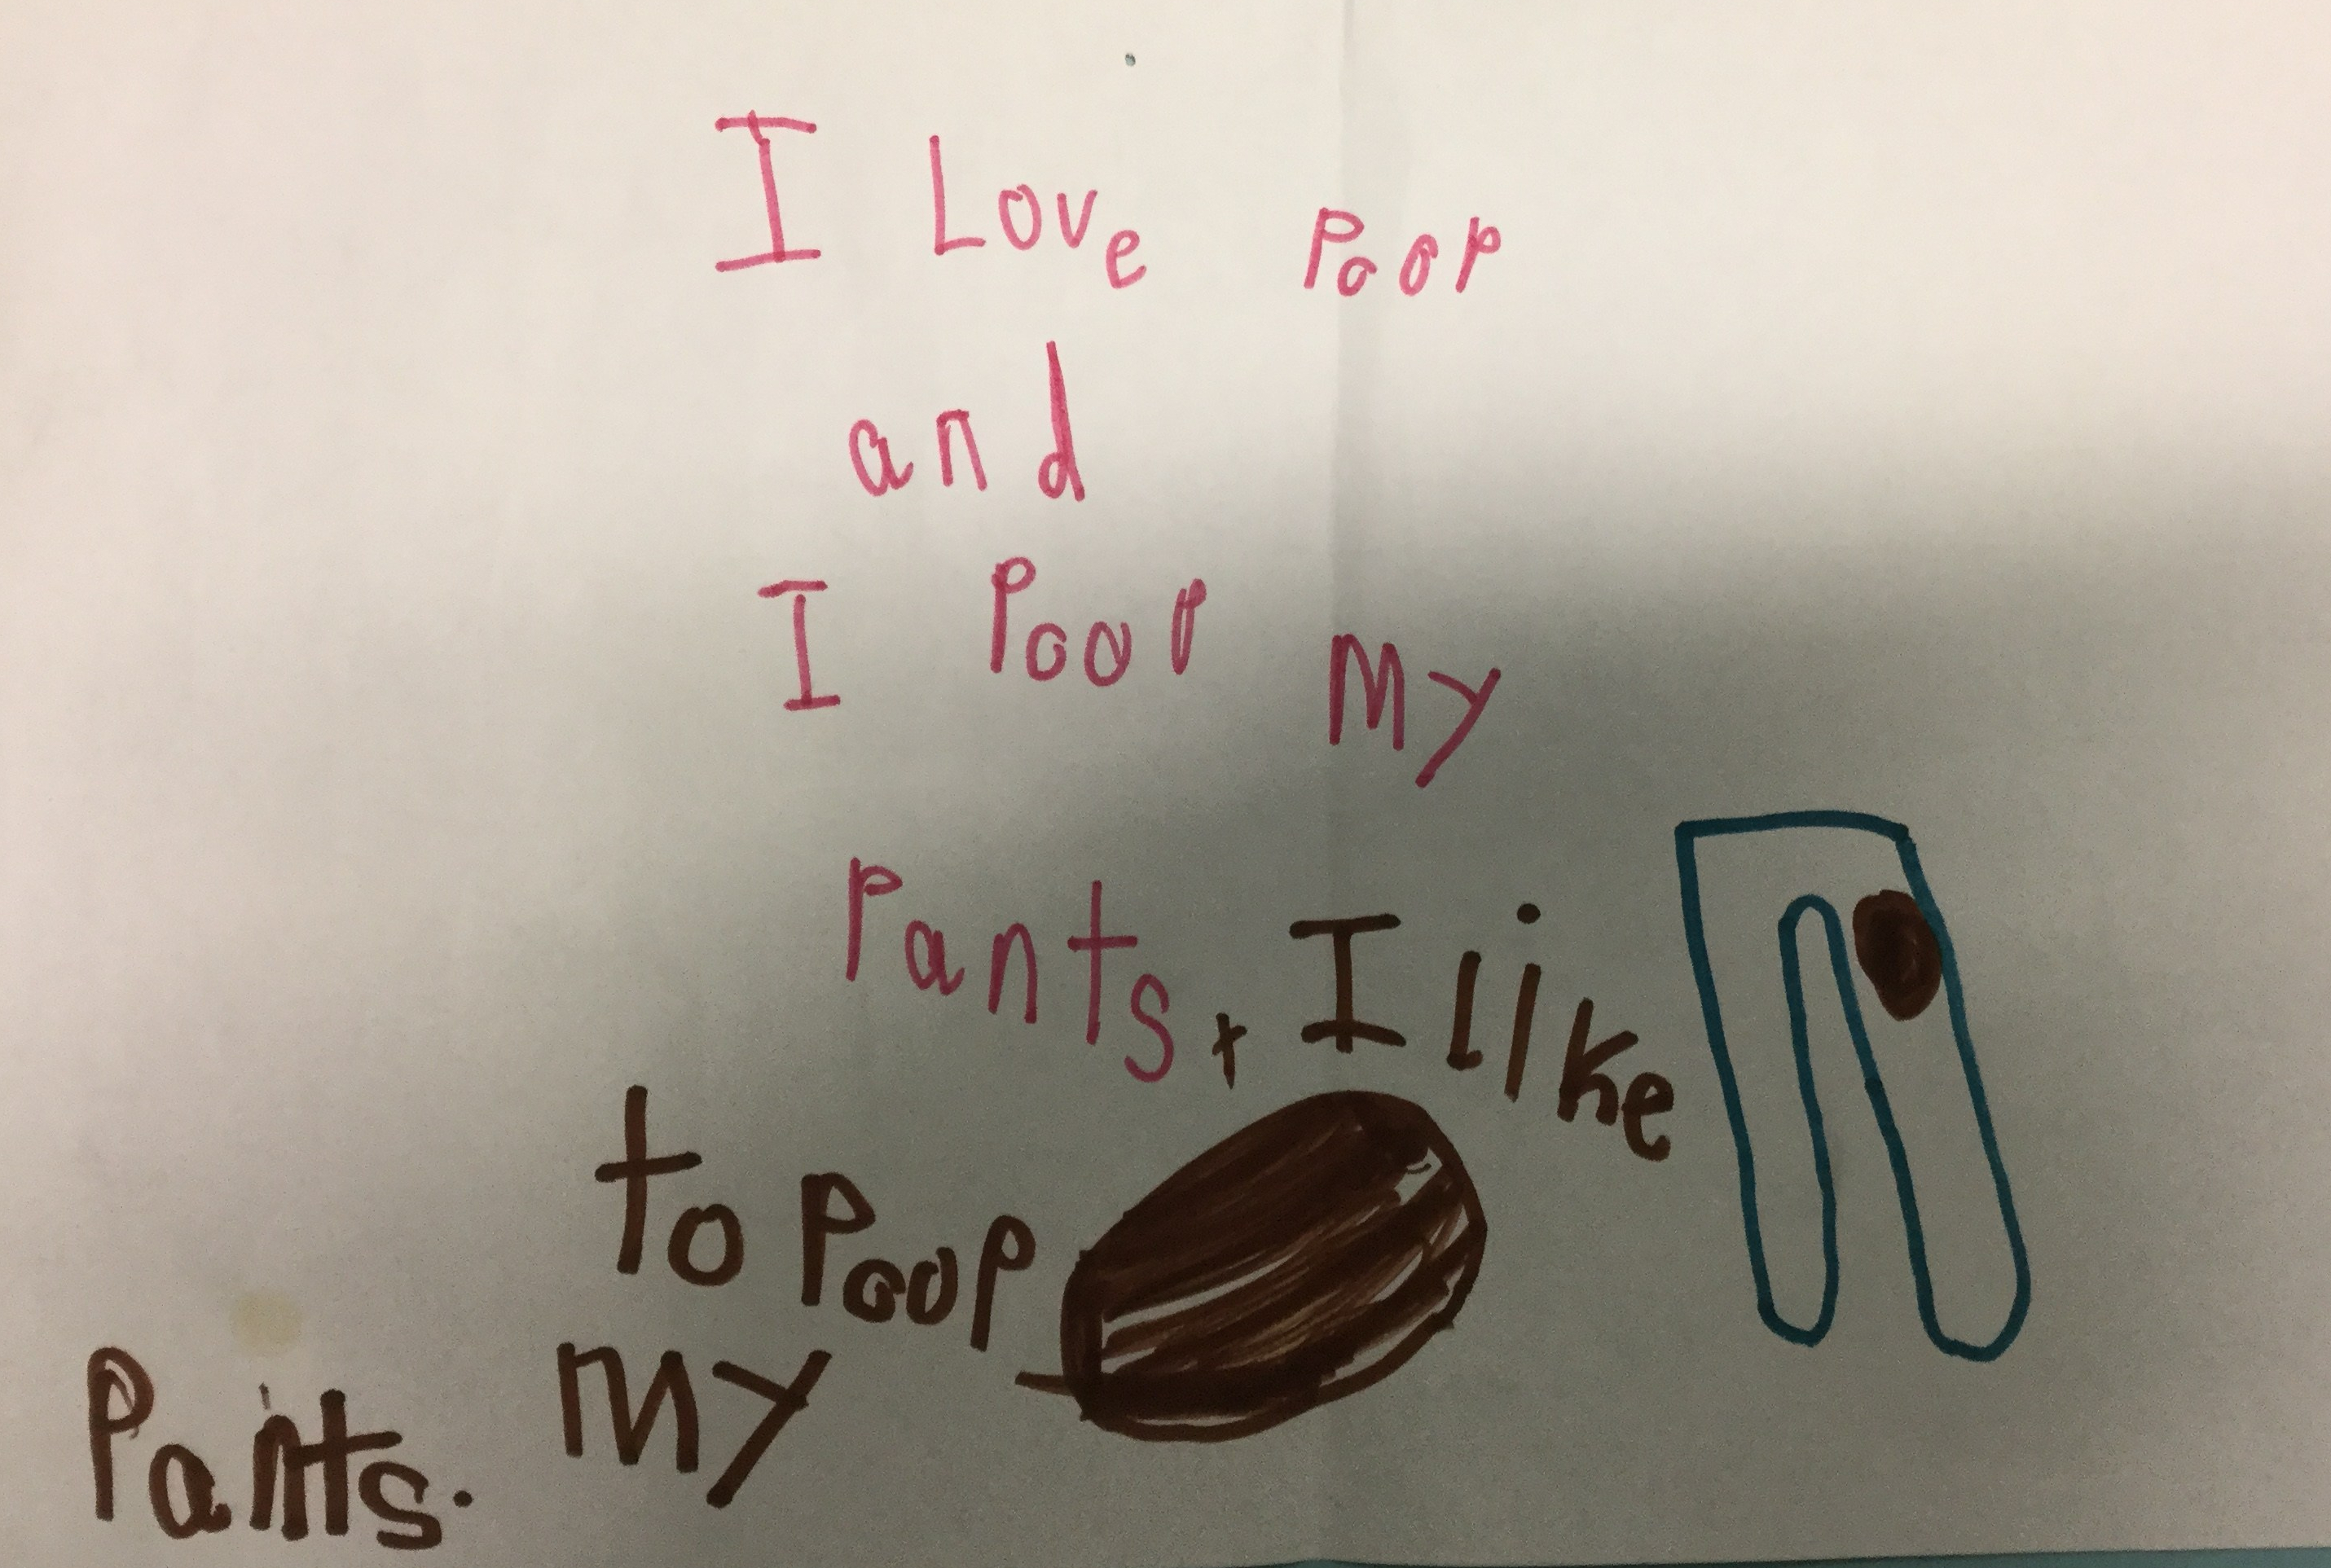 I Love Poop
and
I Poop My
Pants + I like
to Poop
My
Pants.